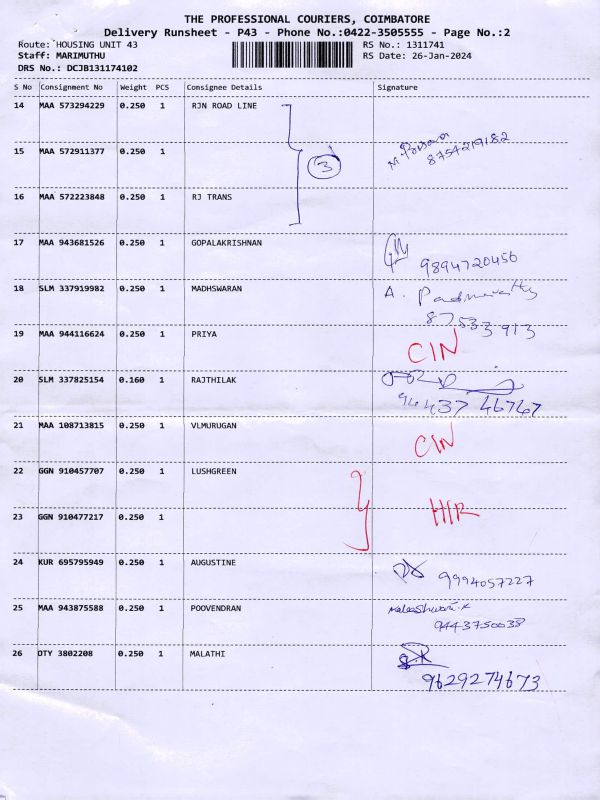 THE PROFESSIONAL COURIERS, COIMBATORE
Delivery Runsheet - P43 - Phone No.:0422-3505555 - Page No.:2
Route: HOUSING UNIT 43 RS No.: 1311741
Staff: MARIMUTHU RS Date: 26-Jan-2024
DRS No.: DCJB131174102
S No Consignment No Weight PCS Consignee Details Signature
14 MAA 573294229 0.250 1 RJN ROAD LINE
15 MAA 572911377 0.250 1 3 8754219182
16 MAA 572223848 0.250 1 RJ TRANS
17 MAA 943681526 0.250 1 GOPALAKRISHNAN
9894720456
18 SLM 337919982 0.250 1 MADHSWARAN A.
87533913
19 MAA 944116624 0.250 1 PRIYA
CIN
20 SLM 337825154 0.160 1 RAJTHILAK
94437 46767
21 MAA 108713815 0.250 1 VLMURUGAN
CIN
22 GGN 910457707 0.250 1 LUSHGREEN
23 GGN 910477217 0.250 1
24 KUR 695795949 0.250 1 AUGUSTINE
9994057227
25 MAA 943875588 0.250 1 POOVENDRAN
9443750038
26 OTY 3802208 0.250 1 MALATHI
9629274673